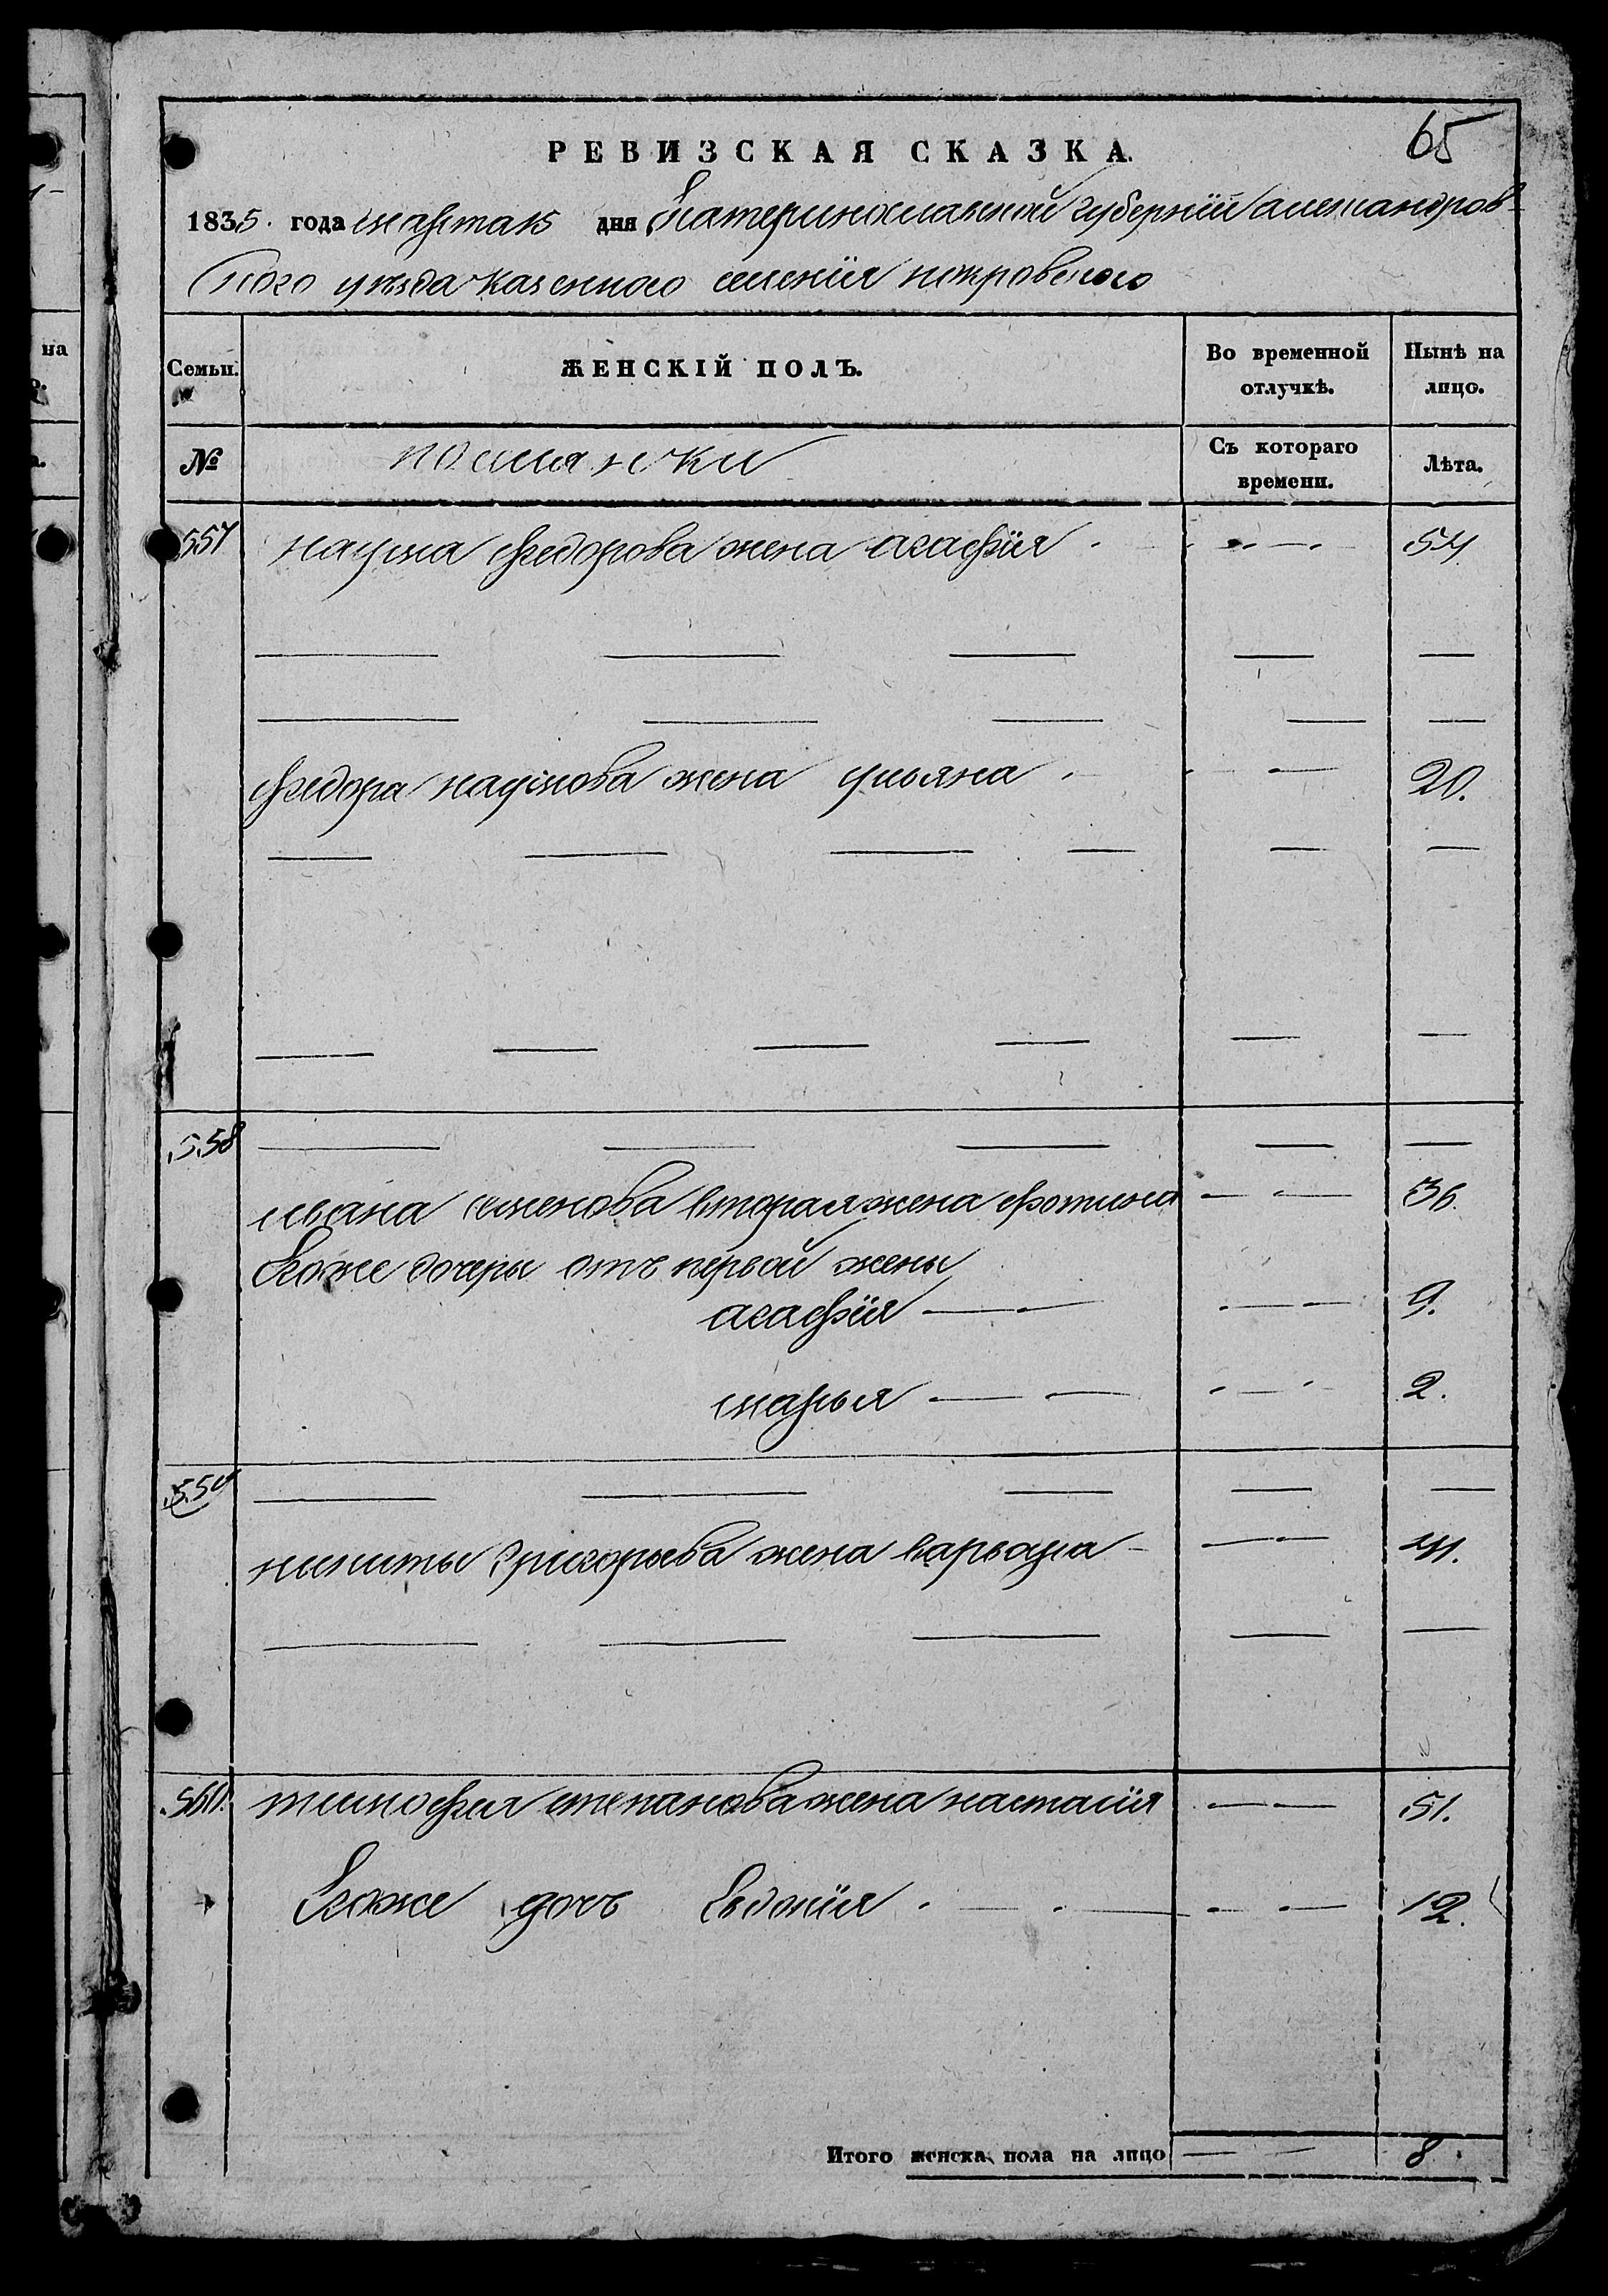 65
РЕВИЗСКАЯ СКАЗКА.
1835. года марта 15 дня Екатеринославской губернїи александров-
ского уѣзда казенного селенїя покровского
Семьи. ЖЕНСКІЙ ПОЛЪ. Во временной отлучкѣ. Нынѣ на лицо.
№ поселянки Съ котораго времени. Лѣта.
557 наума федорова жена агафїя 54.
федора наумова жена ульяна 20.
558
ивана семенова вторая жена фотина 36.
Егоже дочеры отъ первой жены
агафїя 9.
марья 2.
559
никиты григорьева жена варвара 41.
560. тимофея степанова жена настасїя 51.
Егоже дочь Евдокїя 12.
Итого женска пола на лицо 8